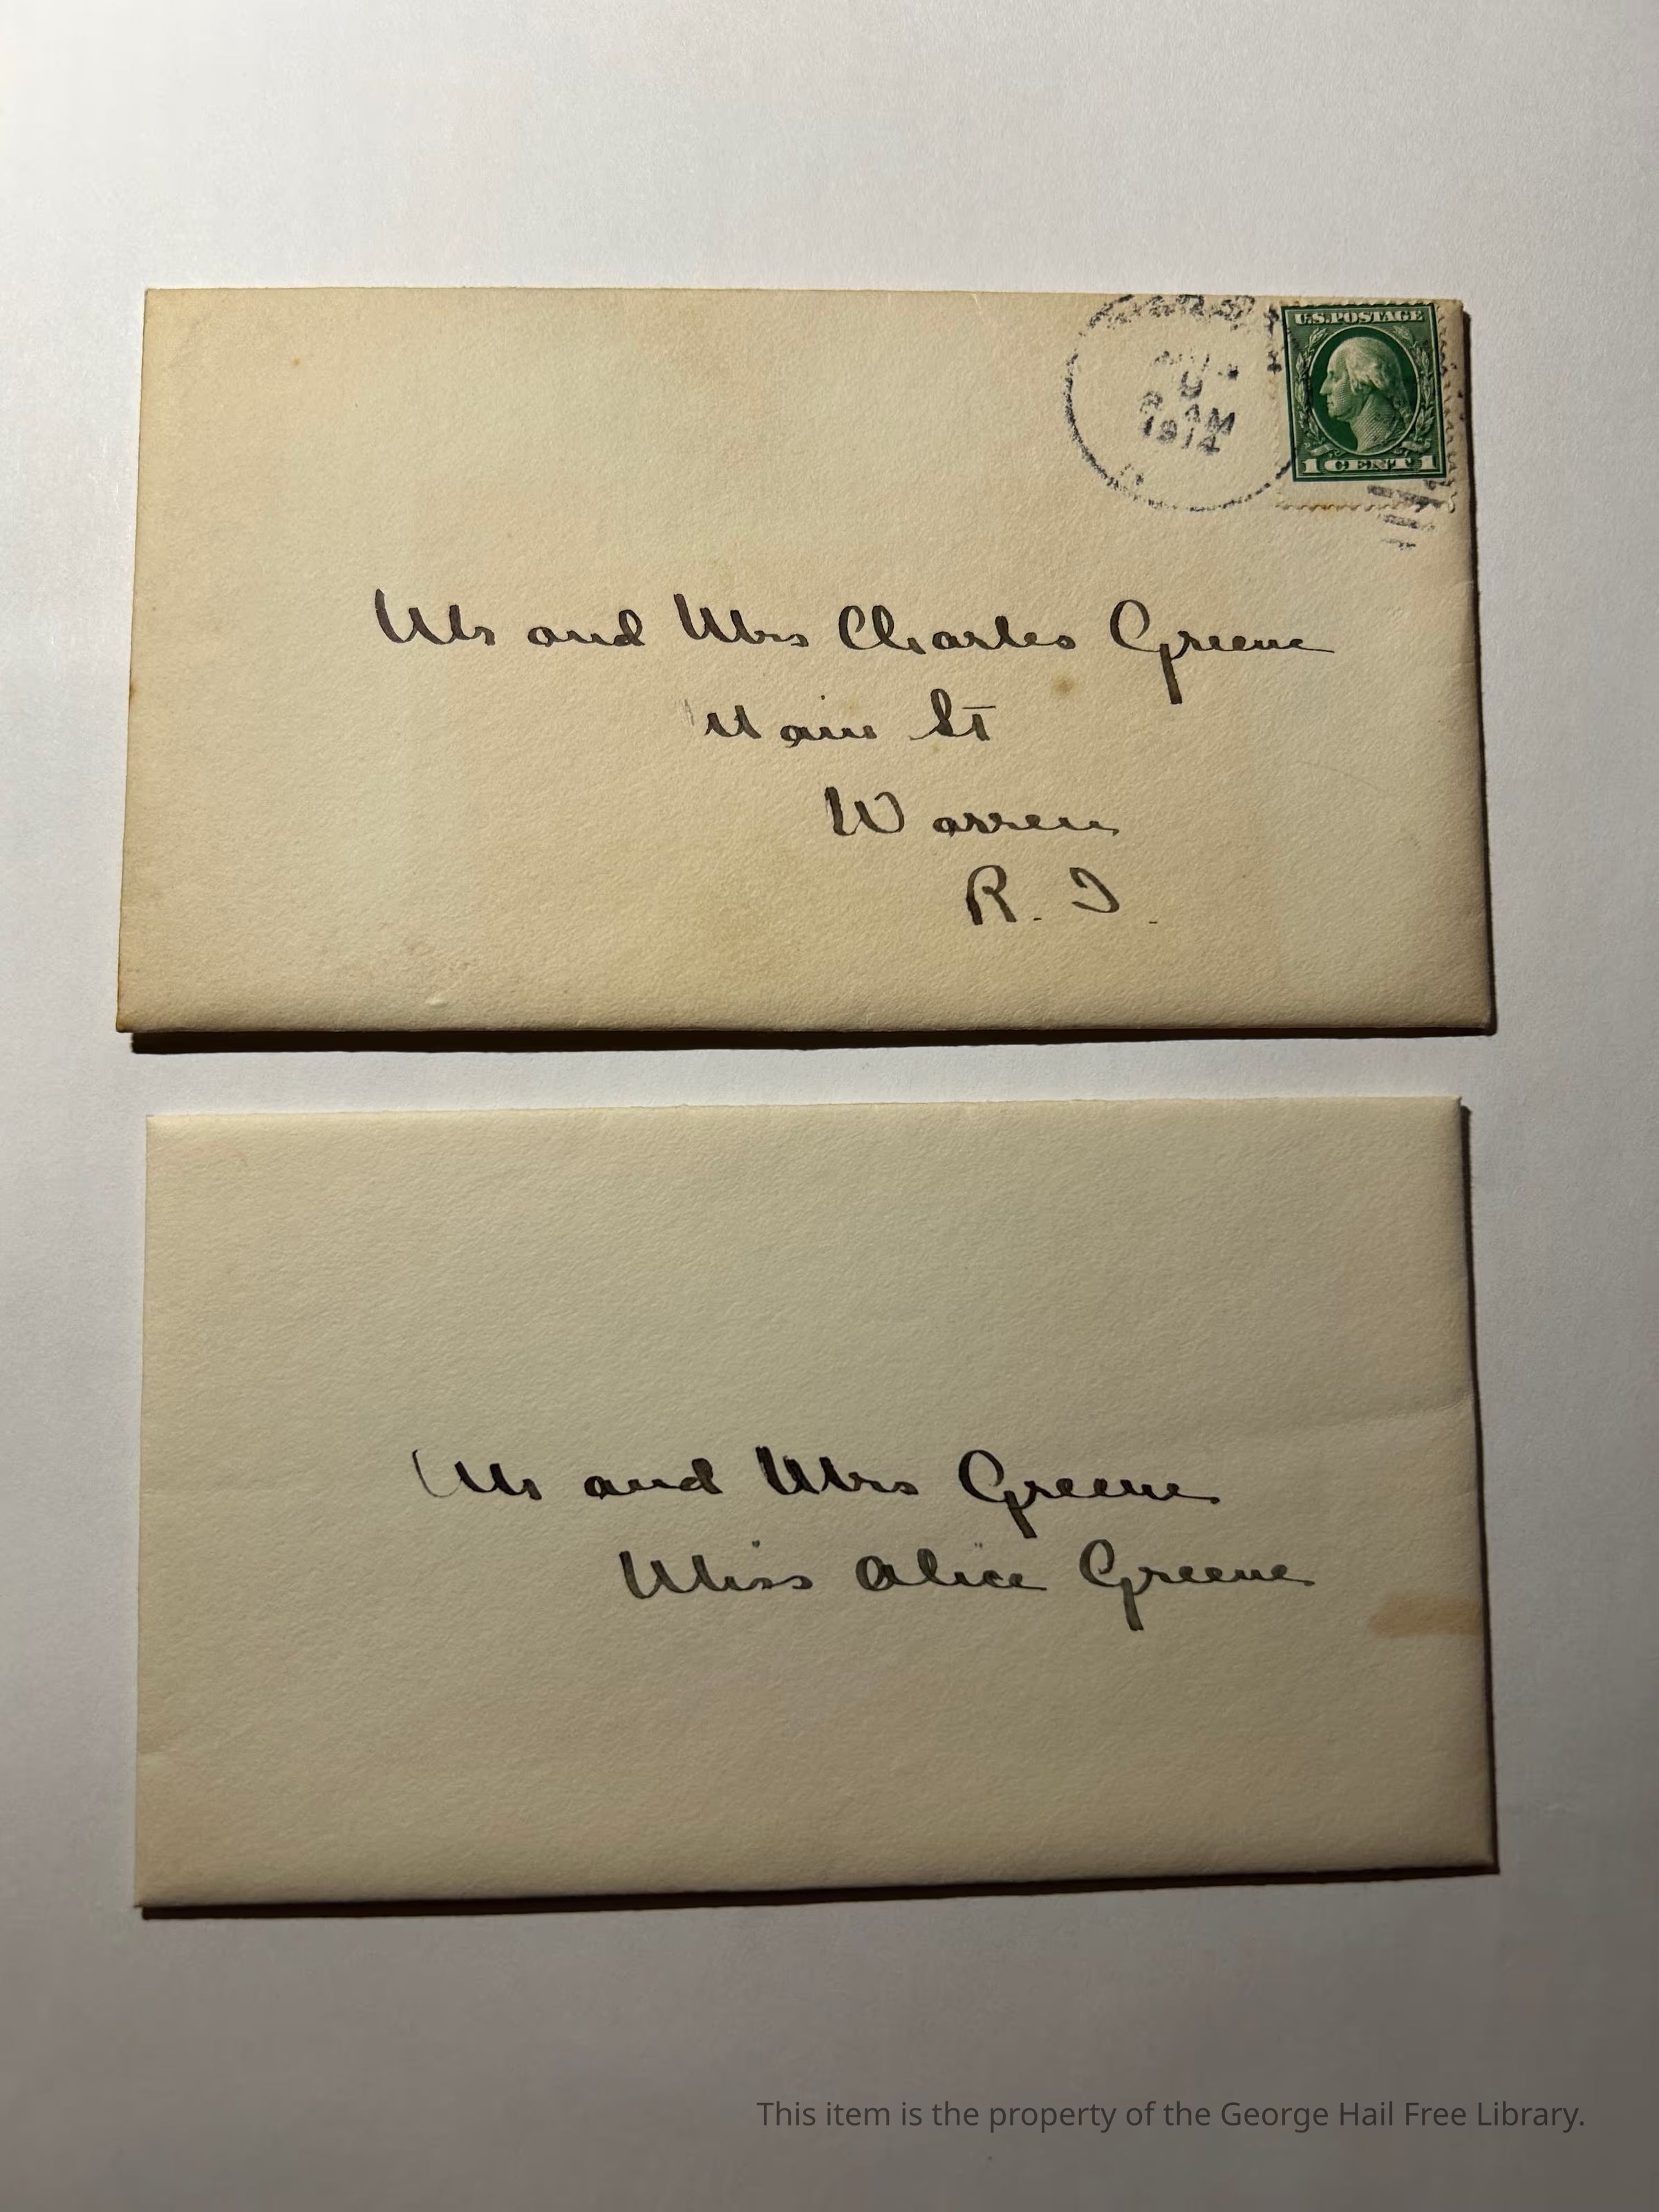 U.S. POSTAGE
AM
1914
1 CENT 1
Mr and Mrs Charles Greene
Main St
Warren
R. I.
Mr and Mrs Greene
Miss Alice Greene
This item is the property of the George Hail Free Library.